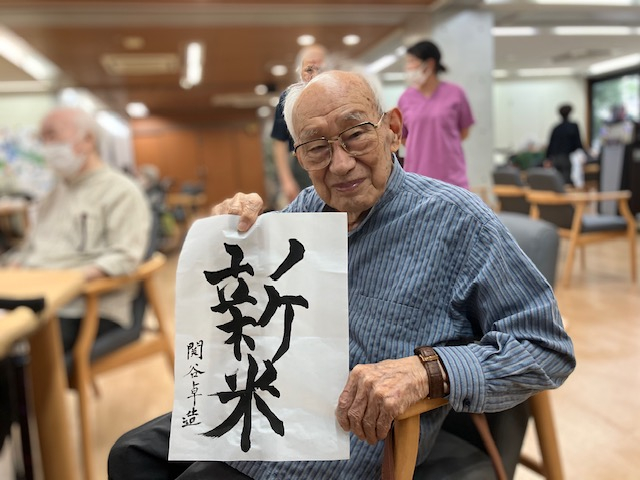 新米
関谷卓造